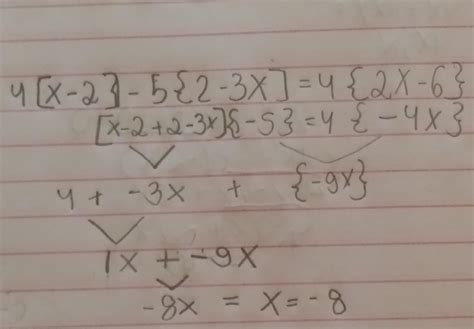 4[x-2]-5{2-3x]=4{2x-6}
[x-2+2-3x]{-5}=4{-4x}
4 + -3x + {-9x}
1x + -9x
-8x = x=-8